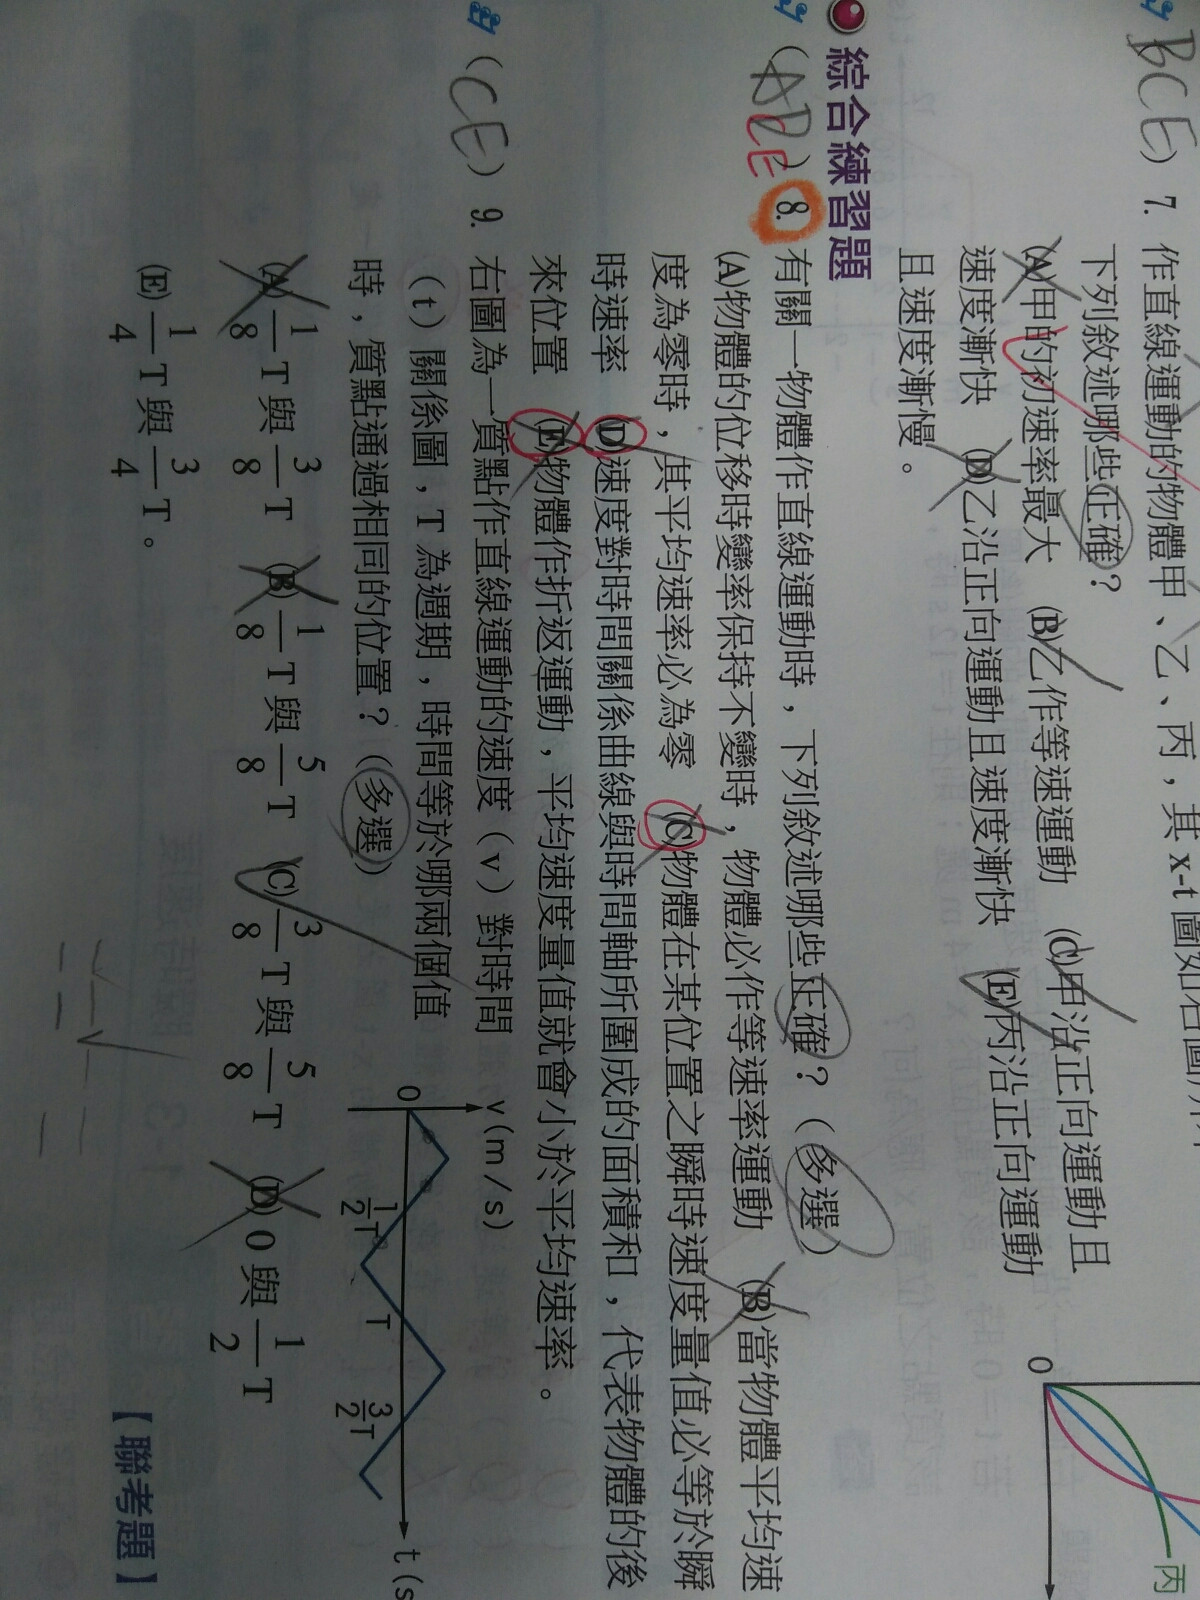 (BCE) 7. 作直線運動的物體甲、乙、丙，其 x-t 圖如右圖所
下列敘述哪些正確？
(A)甲的初速率最大 (B)乙作等速運動 (C)甲沿正向運動且
速度漸快 (D)乙沿正向運動且速度漸快 (E)丙沿正向運動
且速度漸慢。
0
丙
綜合練習題
8. 有關一物體作直線運動時，下列敘述哪些正確？（多選）
(A)物體的位移時變率保持不變時，物體必作等速率運動 (B)當物體平均速
度為零時，其平均速率必為零 (C)物體在某位置之瞬時速度量值必等於瞬
時速率 (D)速度對時間關係曲線與時間軸所圍成的面積和，代表物體的後
來位置 (E)物體作折返運動，平均速度量值就會小於平均速率。
(CE) 9. 右圖為一質點作直線運動的速度（v）對時間
（t）關係圖，T 為週期，時間等於哪兩個值
時，質點通過相同的位置？（多選）
(A) 1/8 T 與 3/8 T (B) 1/8 T 與 5/8 T (C) 3/8 T 與 5/8 T (D) 0 與 1/2 T
(E) 1/4 T 與 3/4 T。
v(m/s)
0
1/2 T
T
3/2 T
t(s
【聯考題】